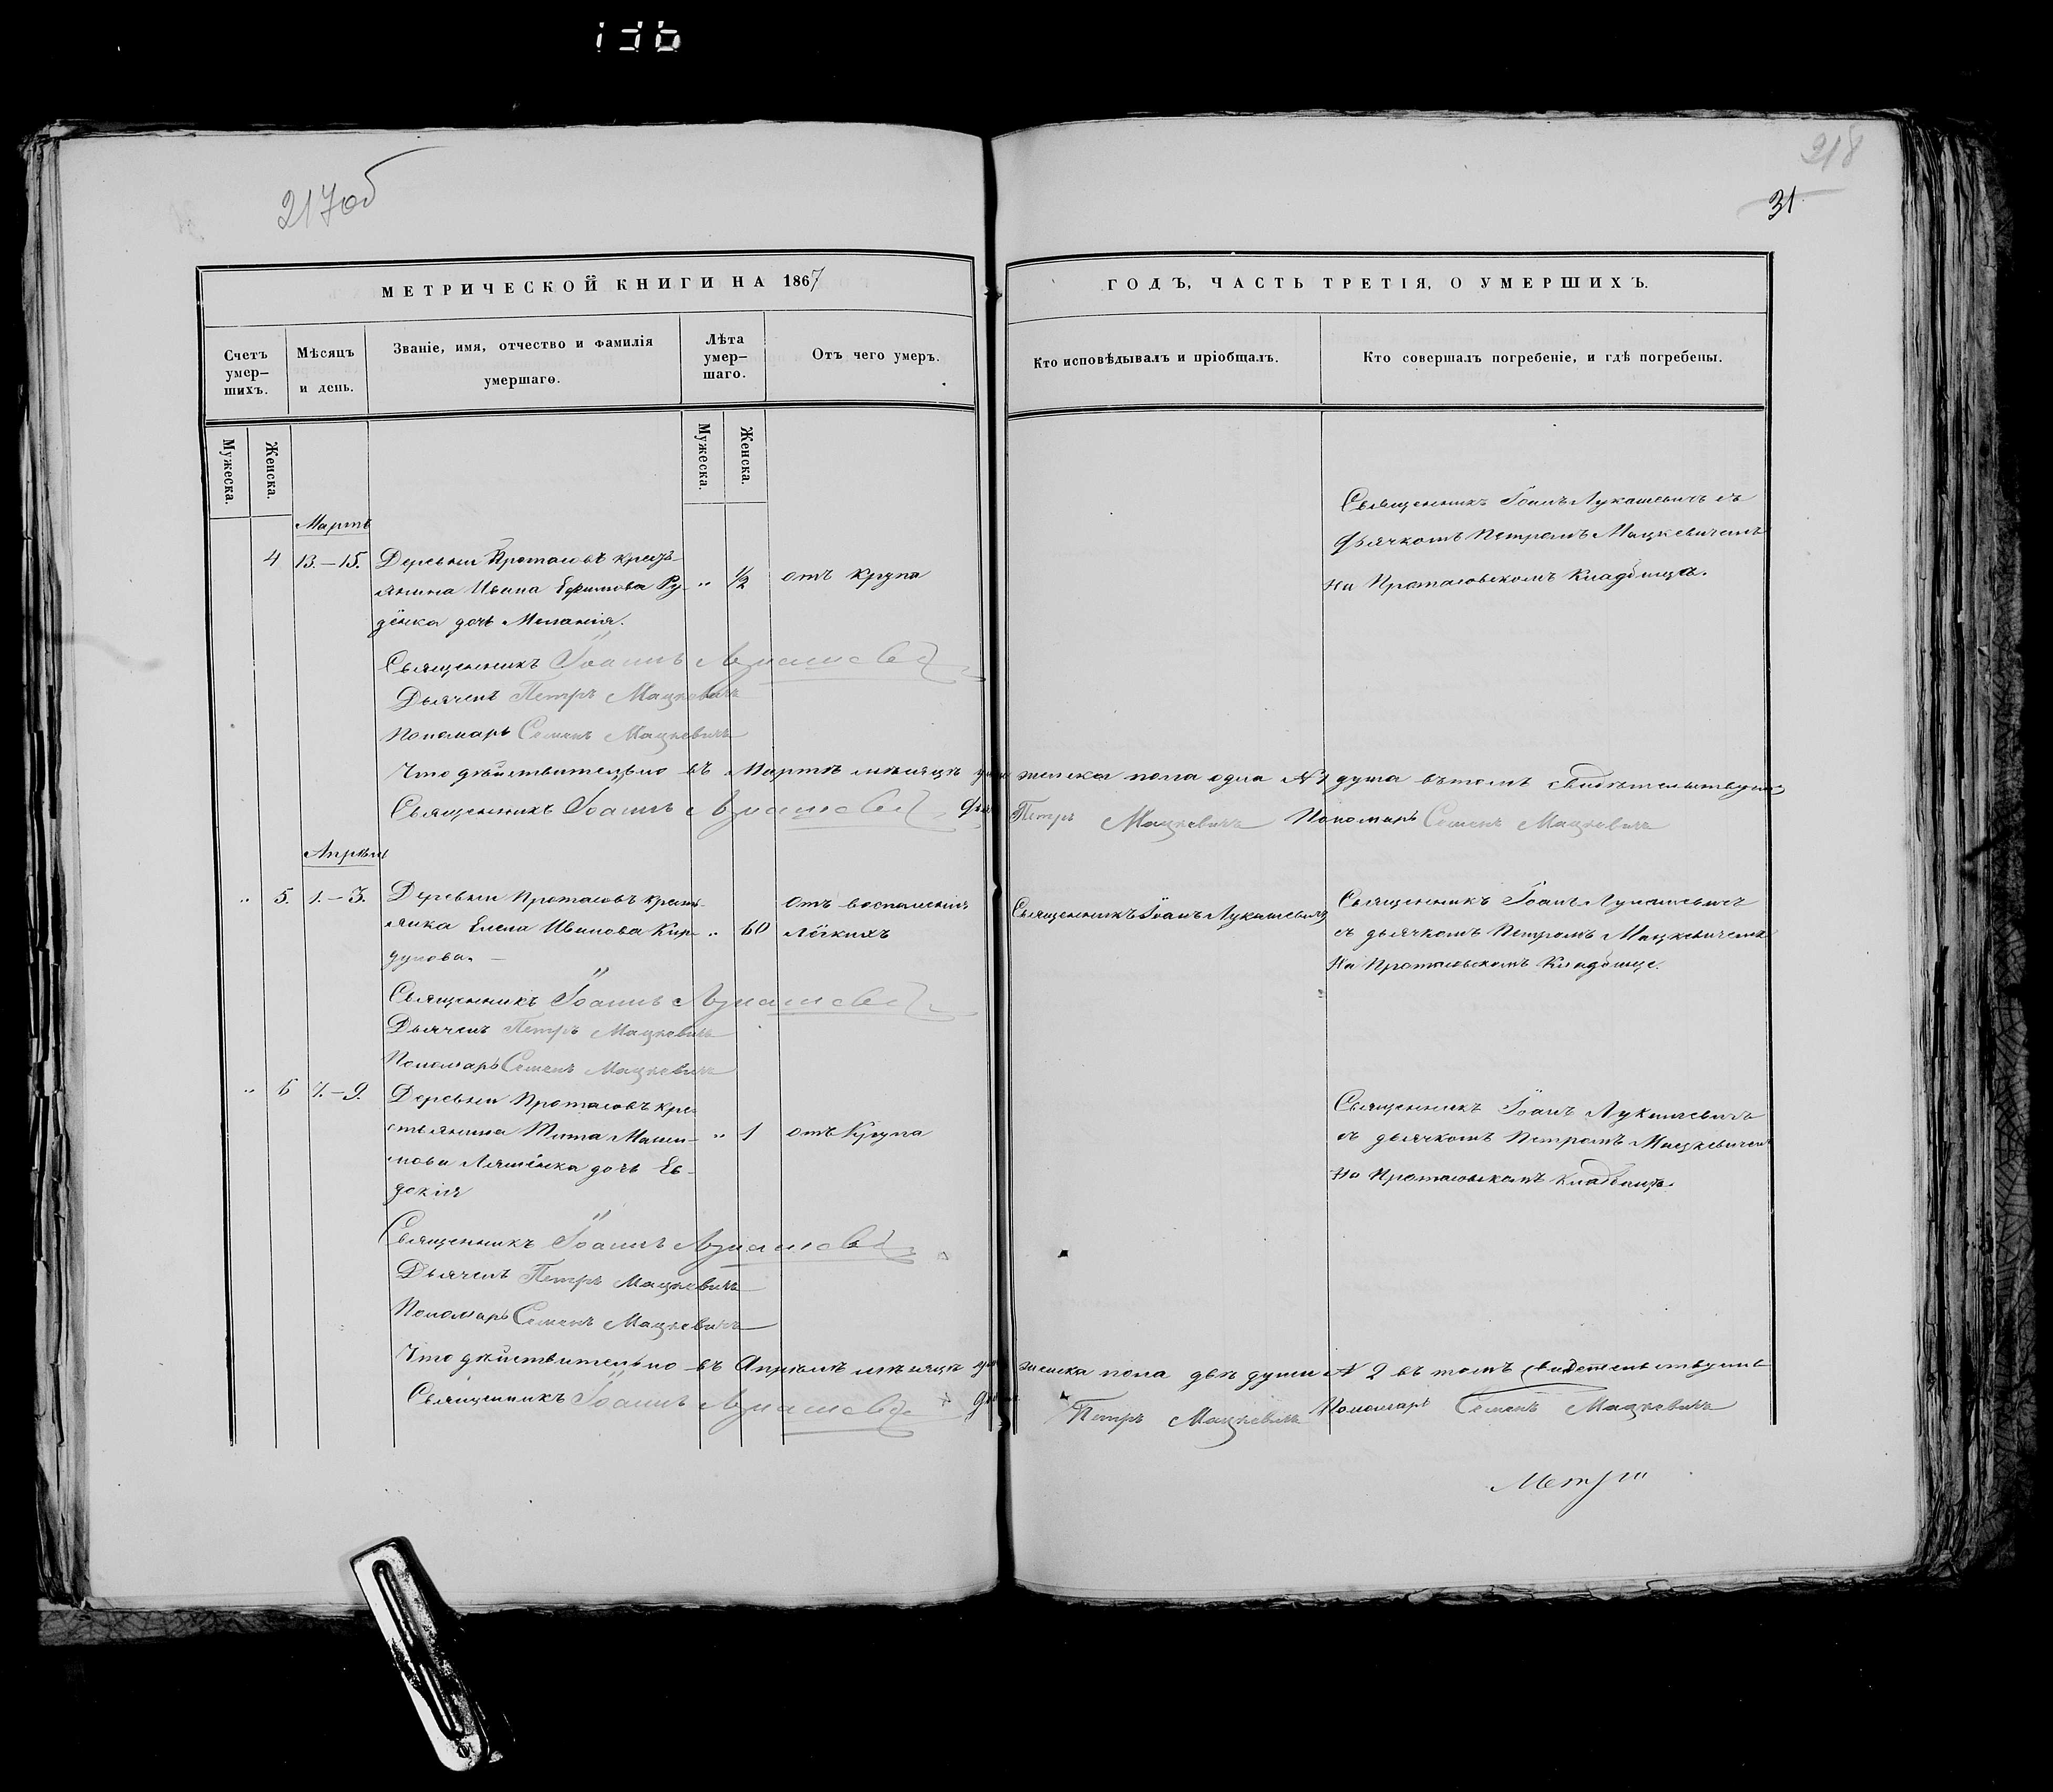 217об
218
31
МЕТРИЧЕСКОЙ КНИГИ НА 1867
ГОДЪ, ЧАСТЬ ТРЕТІЯ, О УМЕРШИХЪ.
Счетъ умер-
шихъ.
Мѣсяцъ
и день.
Званіе, имя, отчество и фамилія
умершаго.
Лѣта
умер-
шаго.
Отъ чего умеръ.
Кто исповѣдывалъ и пріобщалъ.
Кто совершалъ погребеніе, и гдѣ погребены.
Мужеска.
Женска.
Мужеска.
Женска.
Мартъ
4 13.–15. Деревни Протасовъ кресть-
янина Ивана Ефимова Ру- " ½ отъ крупа
дёнка дочь Меланія.
Священникъ Іоанъ Лукашевичъ съ
дьячкомъ Петромъ Мацкевичемъ
на Протасовскомъ Кладбища.
Священникъ Іоаннъ Лукашевичъ
Дьячекъ Петръ Мацкевичъ
Пономарь Семенъ Мацкевичъ
Что дѣйствительно въ Мартѣ мѣсяцѣ женска пола одна № 1 душа въ томъ свидѣтельствуютъ
Священникъ Іоаннъ Лукашевичъ Петръ Мацкевичъ Пономарь Семенъ Мацкевичъ
Апрѣль
" 5. 1.–3. Деревни Протасовъ кресть-
янка Елена Иванова Кир- " 60 отъ воспаленія
лёгкихъ
дунова.
Священникъ Іоанъ Лукашевичъ
Священникъ Іоанъ Лукашевичъ
съ дьячкомъ Петромъ Мацкевичемъ
На Протасовскомъ Кладбище.
Священникъ Іоаннъ Лукашевичъ
Дьячекъ Петръ Мацкевичъ
Пономарь Семенъ Мацкевичъ
" 6 7.–9. Деревни Протасовъ кре-
стьянина Тита Макси- " 1 отъ Крупа
мова Ляшёнка дочь Ев-
докія
Священникъ Іоанъ Лукашевичъ
съ дьячкомъ Петромъ Мацкевичемъ
На Протасовскомъ кладбищѣ.
Священникъ Іоаннъ Лукашевичъ
Дьячекъ Петръ Мацкевичъ
Пономарь Семенъ Мацкевичъ
Что дѣйствительно въ Апрѣлѣ мѣсяцѣ женска пола двѣ души № 2 въ томъ свидетельствуютъ
Священникъ Іоаннъ Лукашевичъ Петръ Мацкевичъ Пономарь Семенъ Мацкевичъ